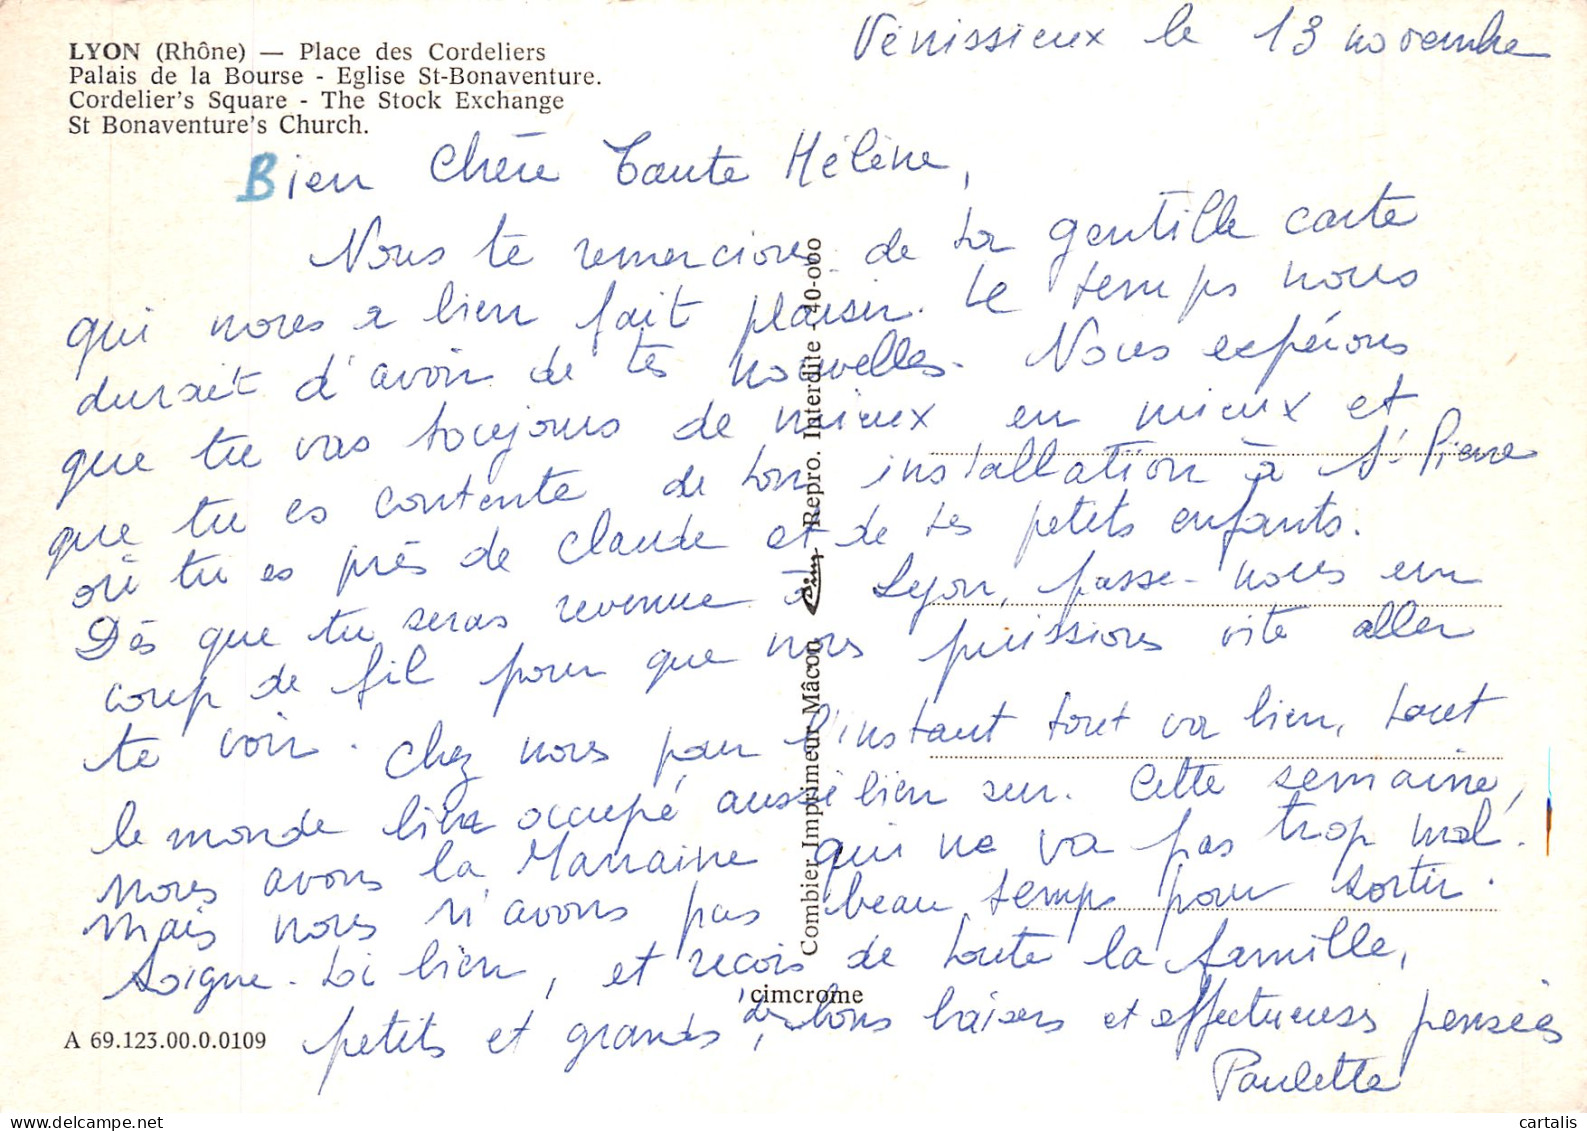 LYON (Rhône) — Place des Cordeliers
Palais de la Bourse - Eglise St-Bonaventure.
Cordelier's Square - The Stock Exchange
St Bonaventure's Church.
Vénissieux le 13 novembre
Bien Chère Tante Hélène,
Nous te remercions de ta gentille carte
qui nous a bien fait plaisir. Le temps nous
durait d'avoir de tes nouvelles. Nous espérons
que tu vas toujours de mieux en mieux et
que tu es contente de ton installation à St Pierre
où tu es près de Claude et de tes petits enfants.
Dès que tu seras revenue à Lyon, passe-nous un
coup de fil pour que nous puissions vite aller
te voir. Chez nous pour l'instant tout va bien, tout
le monde bien occupé aussi bien sur. Cette semaine,
nous avons la Marraine qui ne va pas trop mal.
Mais nous n'avons pas beau temps pour sortir.
Soigne-toi bien, et reçois de toute la famille,
petits et grands, des bons baisers et affectueuses pensées
Paulette
Combier Imprimeur Mâcon Cim Repro. Interdite - 40-000
cimcrome
A 69.123.00.0.0109
cartalis